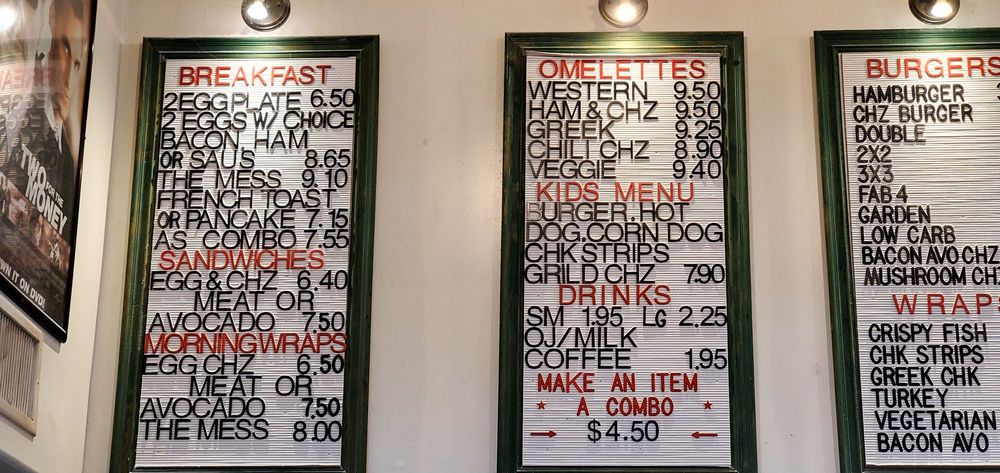 TWO
FOR THE
MONEY
OWN IT ON DVD!
BREAKFAST
2 EGG PLATE 6.50
2 EGGS W/ CHOICE
BACON, HAM
OR SAUS 8.65
THE MESS 9.10
FRENCH TOAST
OR PANCAKE 7.15
AS COMBO 7.55
SANDWICHES
EGG & CHZ 6.40
MEAT OR
AVOCADO 7.50
MORNING WRAPS
EGG CHZ 6.50
MEAT OR
AVOCADO 7.50
THE MESS 8.00
OMELETTES
WESTERN 9.50
HAM & CHZ 9.50
GREEK 9.25
CHILI CHZ 8.90
VEGGIE 9.40
KIDS MENU
BURGER, HOT
DOG, CORN DOG
CHK STRIPS
GRILD CHZ 7.90
DRINKS
SM 1.95 LG 2.25
OJ/MILK
COFFEE 1.95
MAKE AN ITEM
★ A COMBO ★
→ $4.50 ←
BURGERS
HAMBURGER
CHZ BURGER
DOUBLE
2X2
3X3
FAB 4
GARDEN
LOW CARB
BACON AVO CHZ
MUSHROOM CHZ
WRAP
CRISPY FISH
CHK STRIPS
GREEK CHK
TURKEY
VEGETARIAN
BACON AVO